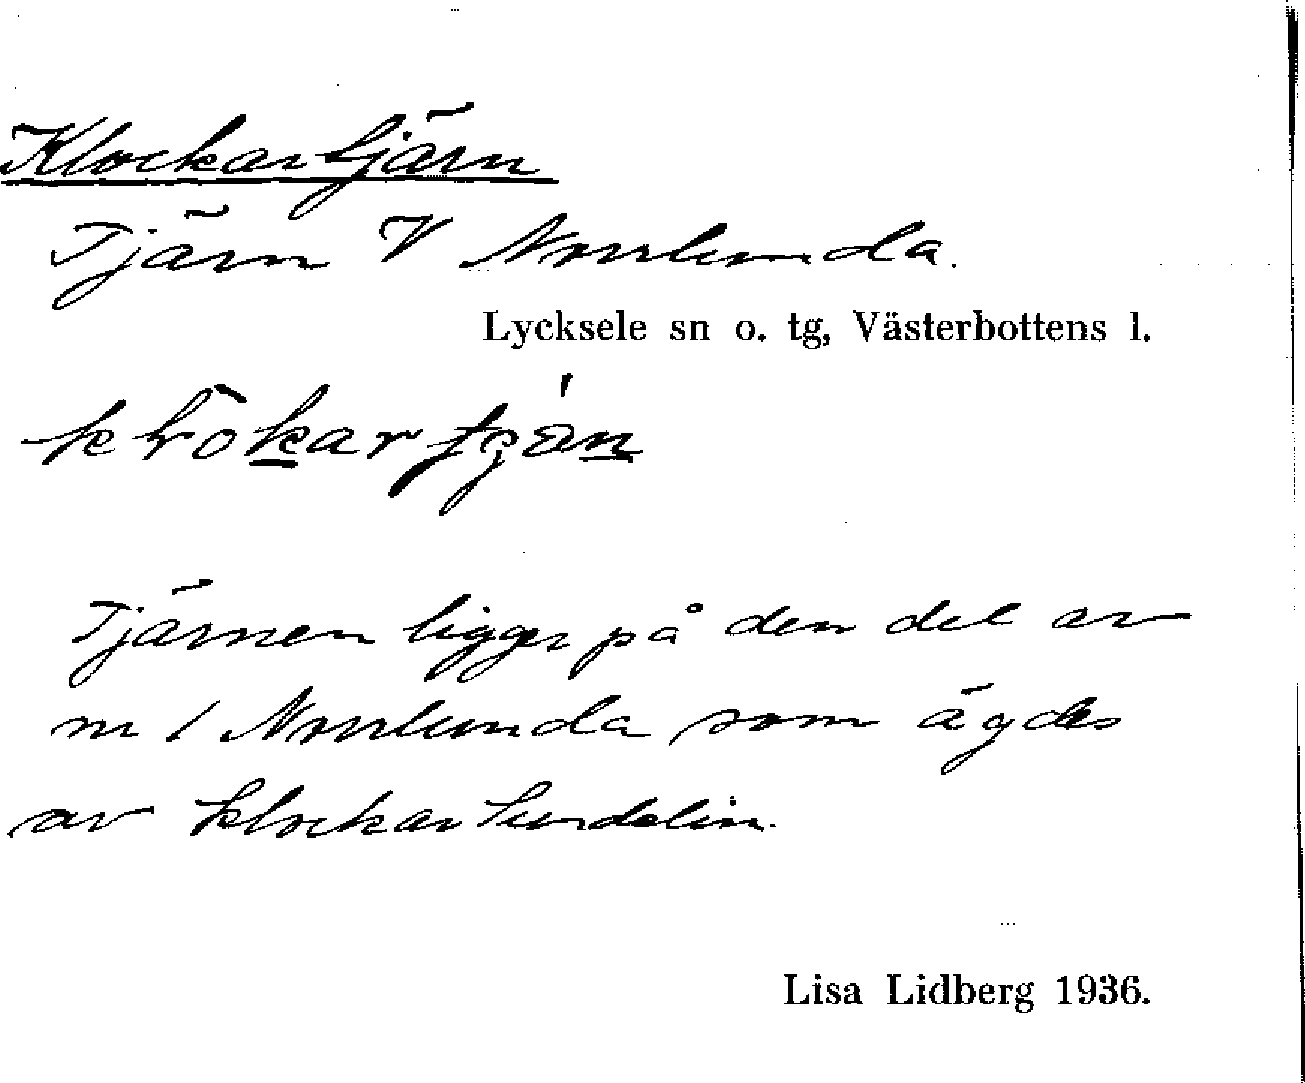 Klockartjärn
Tjärn V Norrlunda.
Lycksele sn o. tg, Västerbottens l.
Tjärnen ligger på den del av
nr 1 Norrlunda som ägdes
av klockar Lundelin.
Lisa Lidberg 1936.